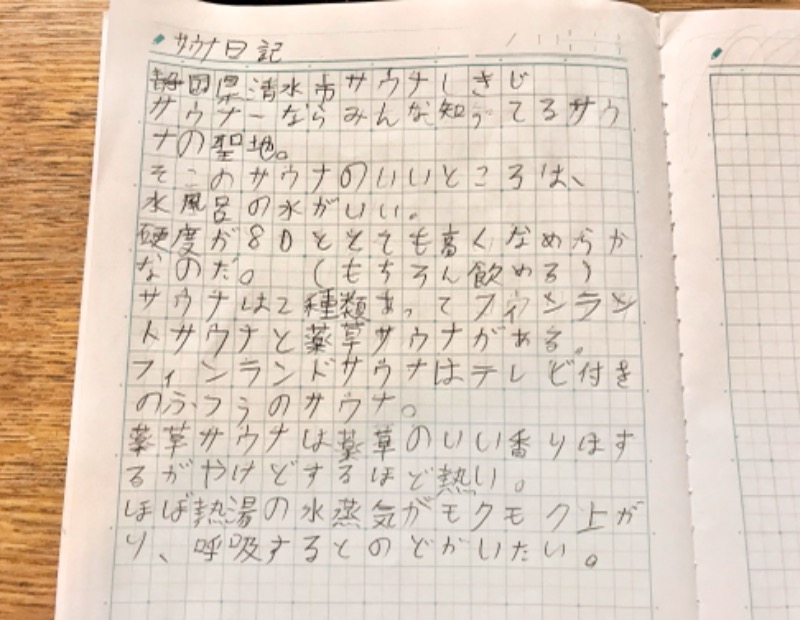 サウナ日記
静岡県清水市サウナしきじ
サウナーならみんな知ってるサウ
ナの聖地。
そこのサウナのいいところは、
水風呂の水がいい。
硬度が80ととても高くなめらか
なのだ。(もちろん飲める)
サウナは2種類あってフィンラン
ドサウナと薬草サウナがある。
フィンランドサウナはテレビ付き
のふつうのサウナ。
薬草サウナは薬草のいい香りはす
るがやけどするほど熱い。
ほぼ熱湯の水蒸気がモクモク上が
り、呼吸するとのどがいたい。